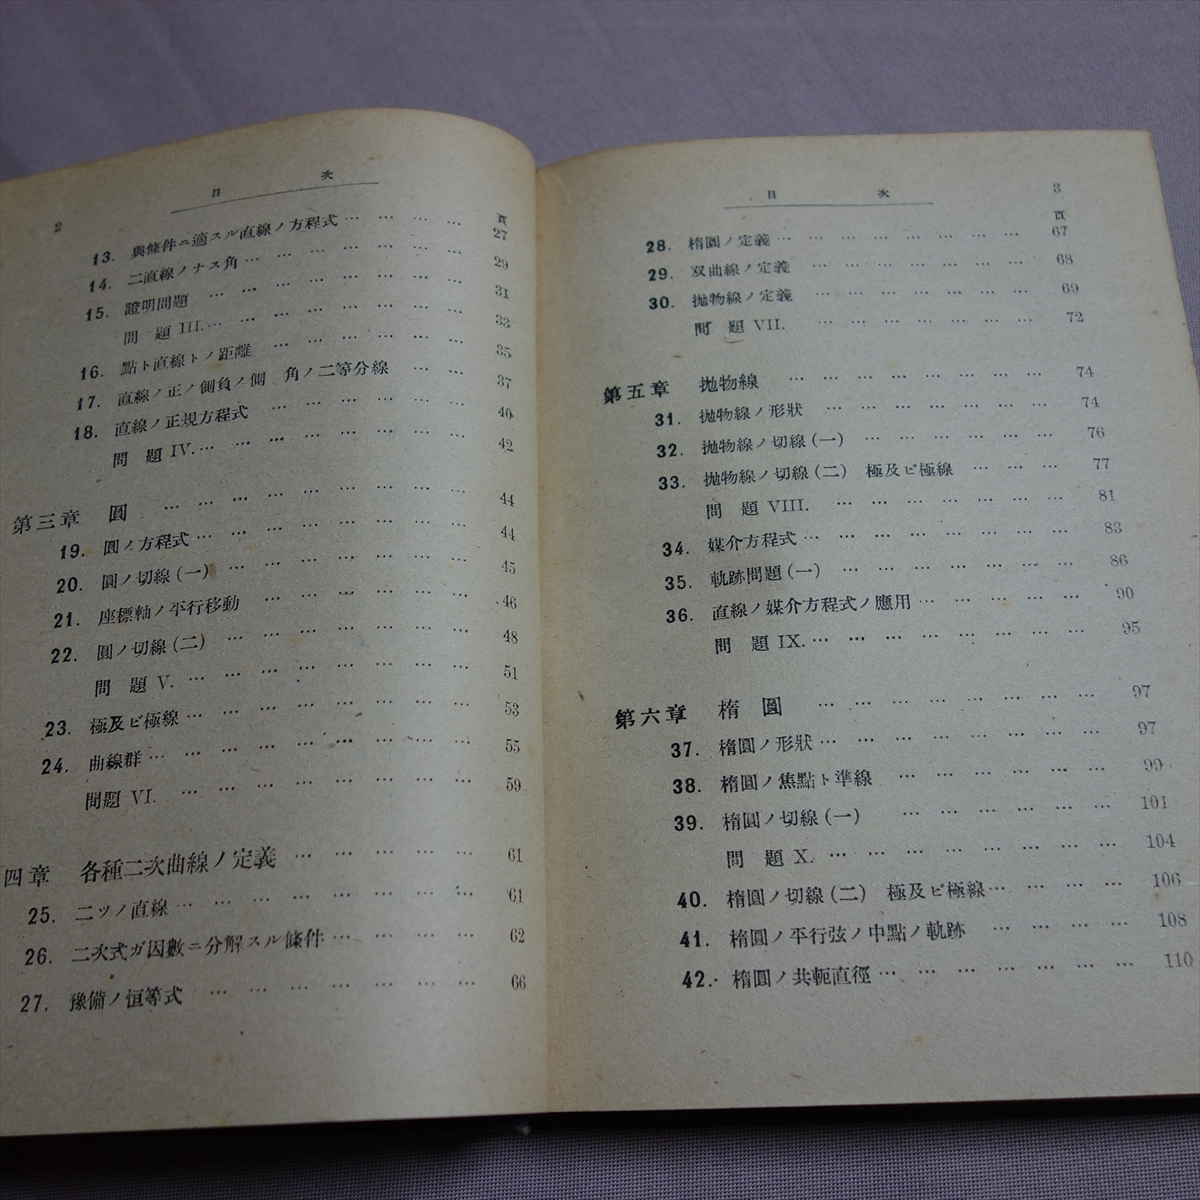 2 目 次
頁
13. 與條件ニ適スル直線ノ方程式 … … … … 27
14. 二直線ノナス角 … … … … … … 29
15. 證明問題 … … … … … … … 31
問 題 III. … … … … … … … 33
16. 點ト直線トノ距離 … … … … … … 35
17. 直線ノ正ノ側負ノ側 角ノ二等分線 … … 37
18. 直線ノ正規方程式 … … … … … … 40
問 題 IV. … … … … … … … 42
第三章 圓 … … … … … … … … 44
19. 圓ノ方程式 … … … … … … … 44
20. 圓ノ切線(一) … … … … … … … 45
21. 座標軸ノ平行移動 … … … … … … 46
22. 圓ノ切線(二) … … … … … … … 48
問 題 V. … … … … … … … … 51
23. 極及ビ極線 … … … … … … … 53
24. 曲線群 … … … … … … … … 55
問題 VI. … … … … … … … … 59
四章 各種二次曲線ノ定義 … … … … … 61
25. 二ツノ直線 … … … … … … … 61
26. 二次式ガ因數ニ分解スル條件 … … … … 62
27. 豫備ノ恒等式 … … … … … … … 66
目 次 3
頁
28. 楕圓ノ定義 … … … … … … … 67
29. 双曲線ノ定義 … … … … … … 68
30. 抛物線ノ定義 … … … … … … 69
問 題 VII. … … … … … … 72
第五章 抛物線 … … … … … … … 74
31. 抛物線ノ形狀 … … … … … … 74
32. 抛物線ノ切線(一) … … … … … 76
33. 抛物線ノ切線(二) 極及ビ極線 … … … 77
問 題 VIII. … … … … … … 81
34. 媒介方程式 … … … … … … … 83
35. 軌跡問題(一) … … … … … … 86
36. 直線ノ媒介方程式ノ應用 … … … … … 90
問 題 IX. … … … … … … … 95
第六章 楕 圓 … … … … … … 97
37. 楕圓ノ形狀 … … … … … … … 97
38. 楕圓ノ焦點ト準線 … … … … … 99
39. 楕圓ノ切線(一) … … … … … … 101
問 題 X. … … … … … … … 104
40. 楕圓ノ切線(二) 極及ビ極線 … … … … 106
41. 楕圓ノ平行弦ノ中點ノ軌跡 … … … … 108
42. 楕圓ノ共軛直徑 … … … … … … 110